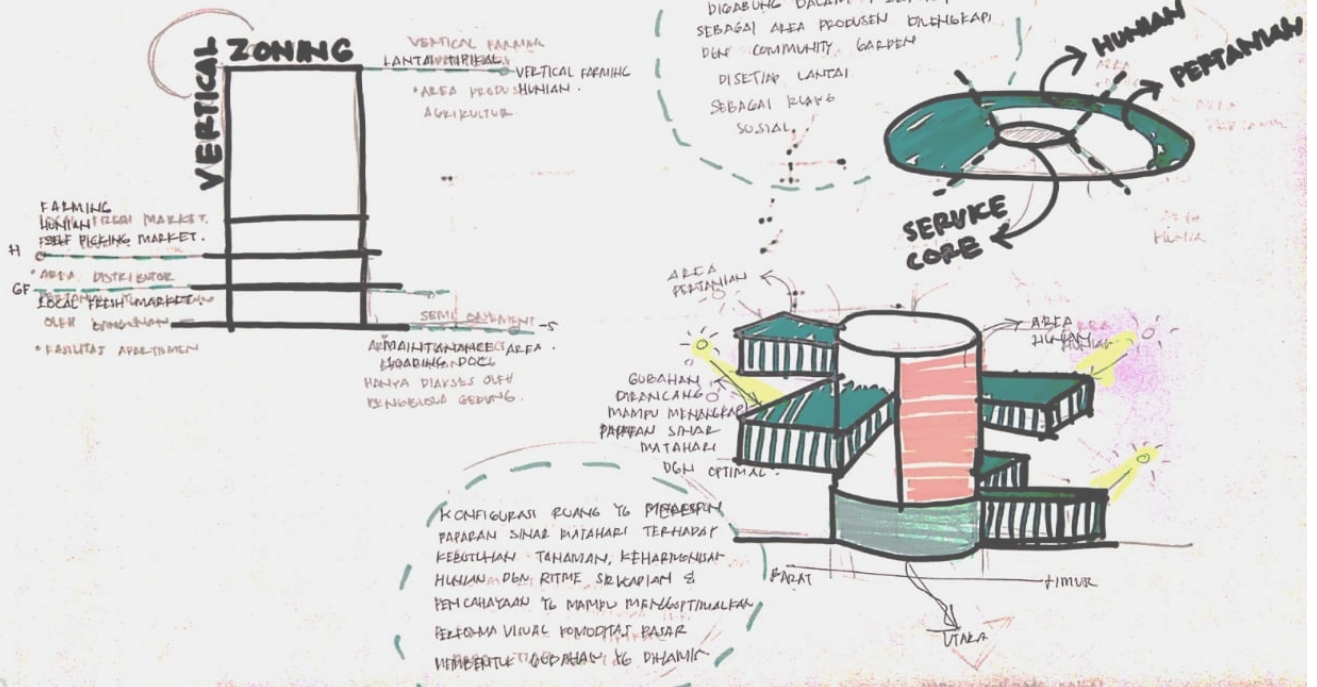 VERTICAL
ZONING
VERTICAL FARMING
LANTAI TIPIKAL
VERTICAL FARMING
HUNIAN.
• AREA PRODUS
AGRIKULTUR
FARMING
HUNIAN
MARKET.
SELF PICKING MARKET.
H
• AREA DISTRIBUTOR
GF
LOCAL FRESH MARKET
OLEH BANGUNAN
• FASILITAS APARTEMEN
SEMI BASEMENT
MAINTANANCE AREA.
LOADING DOCK
HANYA DIAKSES OLEH
PENGELOLA GEDUNG.
DIGABUNG DALAM
SEBAGAI AREA PRODUSEN DILENGKAPI
DGN COMMUNITY GARDEN
DISETIAP LANTAI
SEBAGAI RUANG
SOSIAL
HUNIAN
PERTANIAN
SERVICE
CORE
AREA
PERTANIAN
AREA
HUNIAN
GUBAHAN
DIRANCANG
MAMPU MENANGKAP
PAPARAN SINAR
MATAHARI
DGN OPTIMAL.
KONFIGURASI RUANG YG MERESPON
PAPARAN SINAR MATAHARI TERHADAP
KEBUTUHAN TANAMAN, KEHARMONISAN
HUNIAN DGN RITME SIRKADIAN &
PENCAHAYAAN YG MAMPU MENGOPTIMALKAN
PERFORMA VISUAL KOMODITAS PASAR
MEMBENTUK GUBAHAN YG DINAMIS
BARAT
TIMUR
UTARA